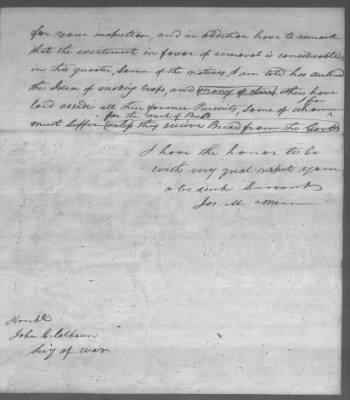 for your inspection, and in addition have to remark
that the excitement in favor of removal is considerable
in this quarter, Some of the natives, I am told has declined
the Idea of making Crops, and many of them others have
laid asside all their former Pursuits, Some of whom
for
for the want of Bread
must Suffer unless they recieve Bread from the Govt
I have the honor to be
with very great respect your
obedient Servant
Jos. McMinn
Honble
John C. Calhoun
Secy of War